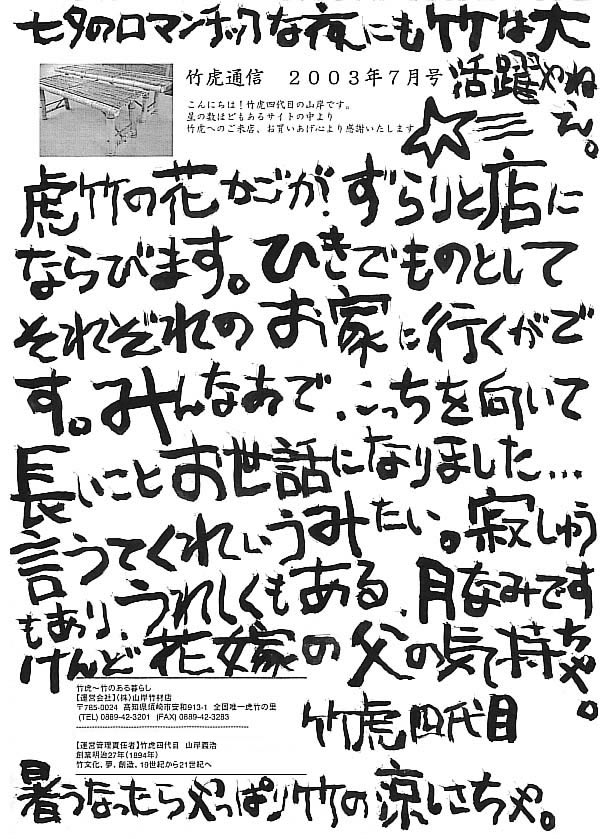 七夕のロマンチックな夜にも竹は大
活躍やねぇ。
竹虎通信 2003年7月号
こんにちは!竹虎四代目の山岸です。
星の数ほどもあるサイトの中より
竹虎へのご来店、お買いあげ心より感謝いたします
虎竹の花かごが!ずらりと店に
ならびます。ひきでものとして
それぞれのお家に行くがで
す。みんなあで、こっちを向いて
長いことお世話になりました…
言うてくれゆうみたい。寂しゅう
もあり、うれしくもある、月なみです
けんど花嫁の父の気持ちや。
竹虎~竹のある暮らし
【運営会社】(株)山岸竹材店
〒785-0024 高知県須崎市安和913-1 全国唯一虎竹の里
(TEL) 0889-42-3201 (FAX) 0889-42-3283
竹虎四代目
【運営管理責任者】竹虎四代目 山岸義浩
創業明治27年(1894年)
竹文化、夢、創造、19世紀から21世紀へ
暑うなったらやっぱり竹の涼しさちや。